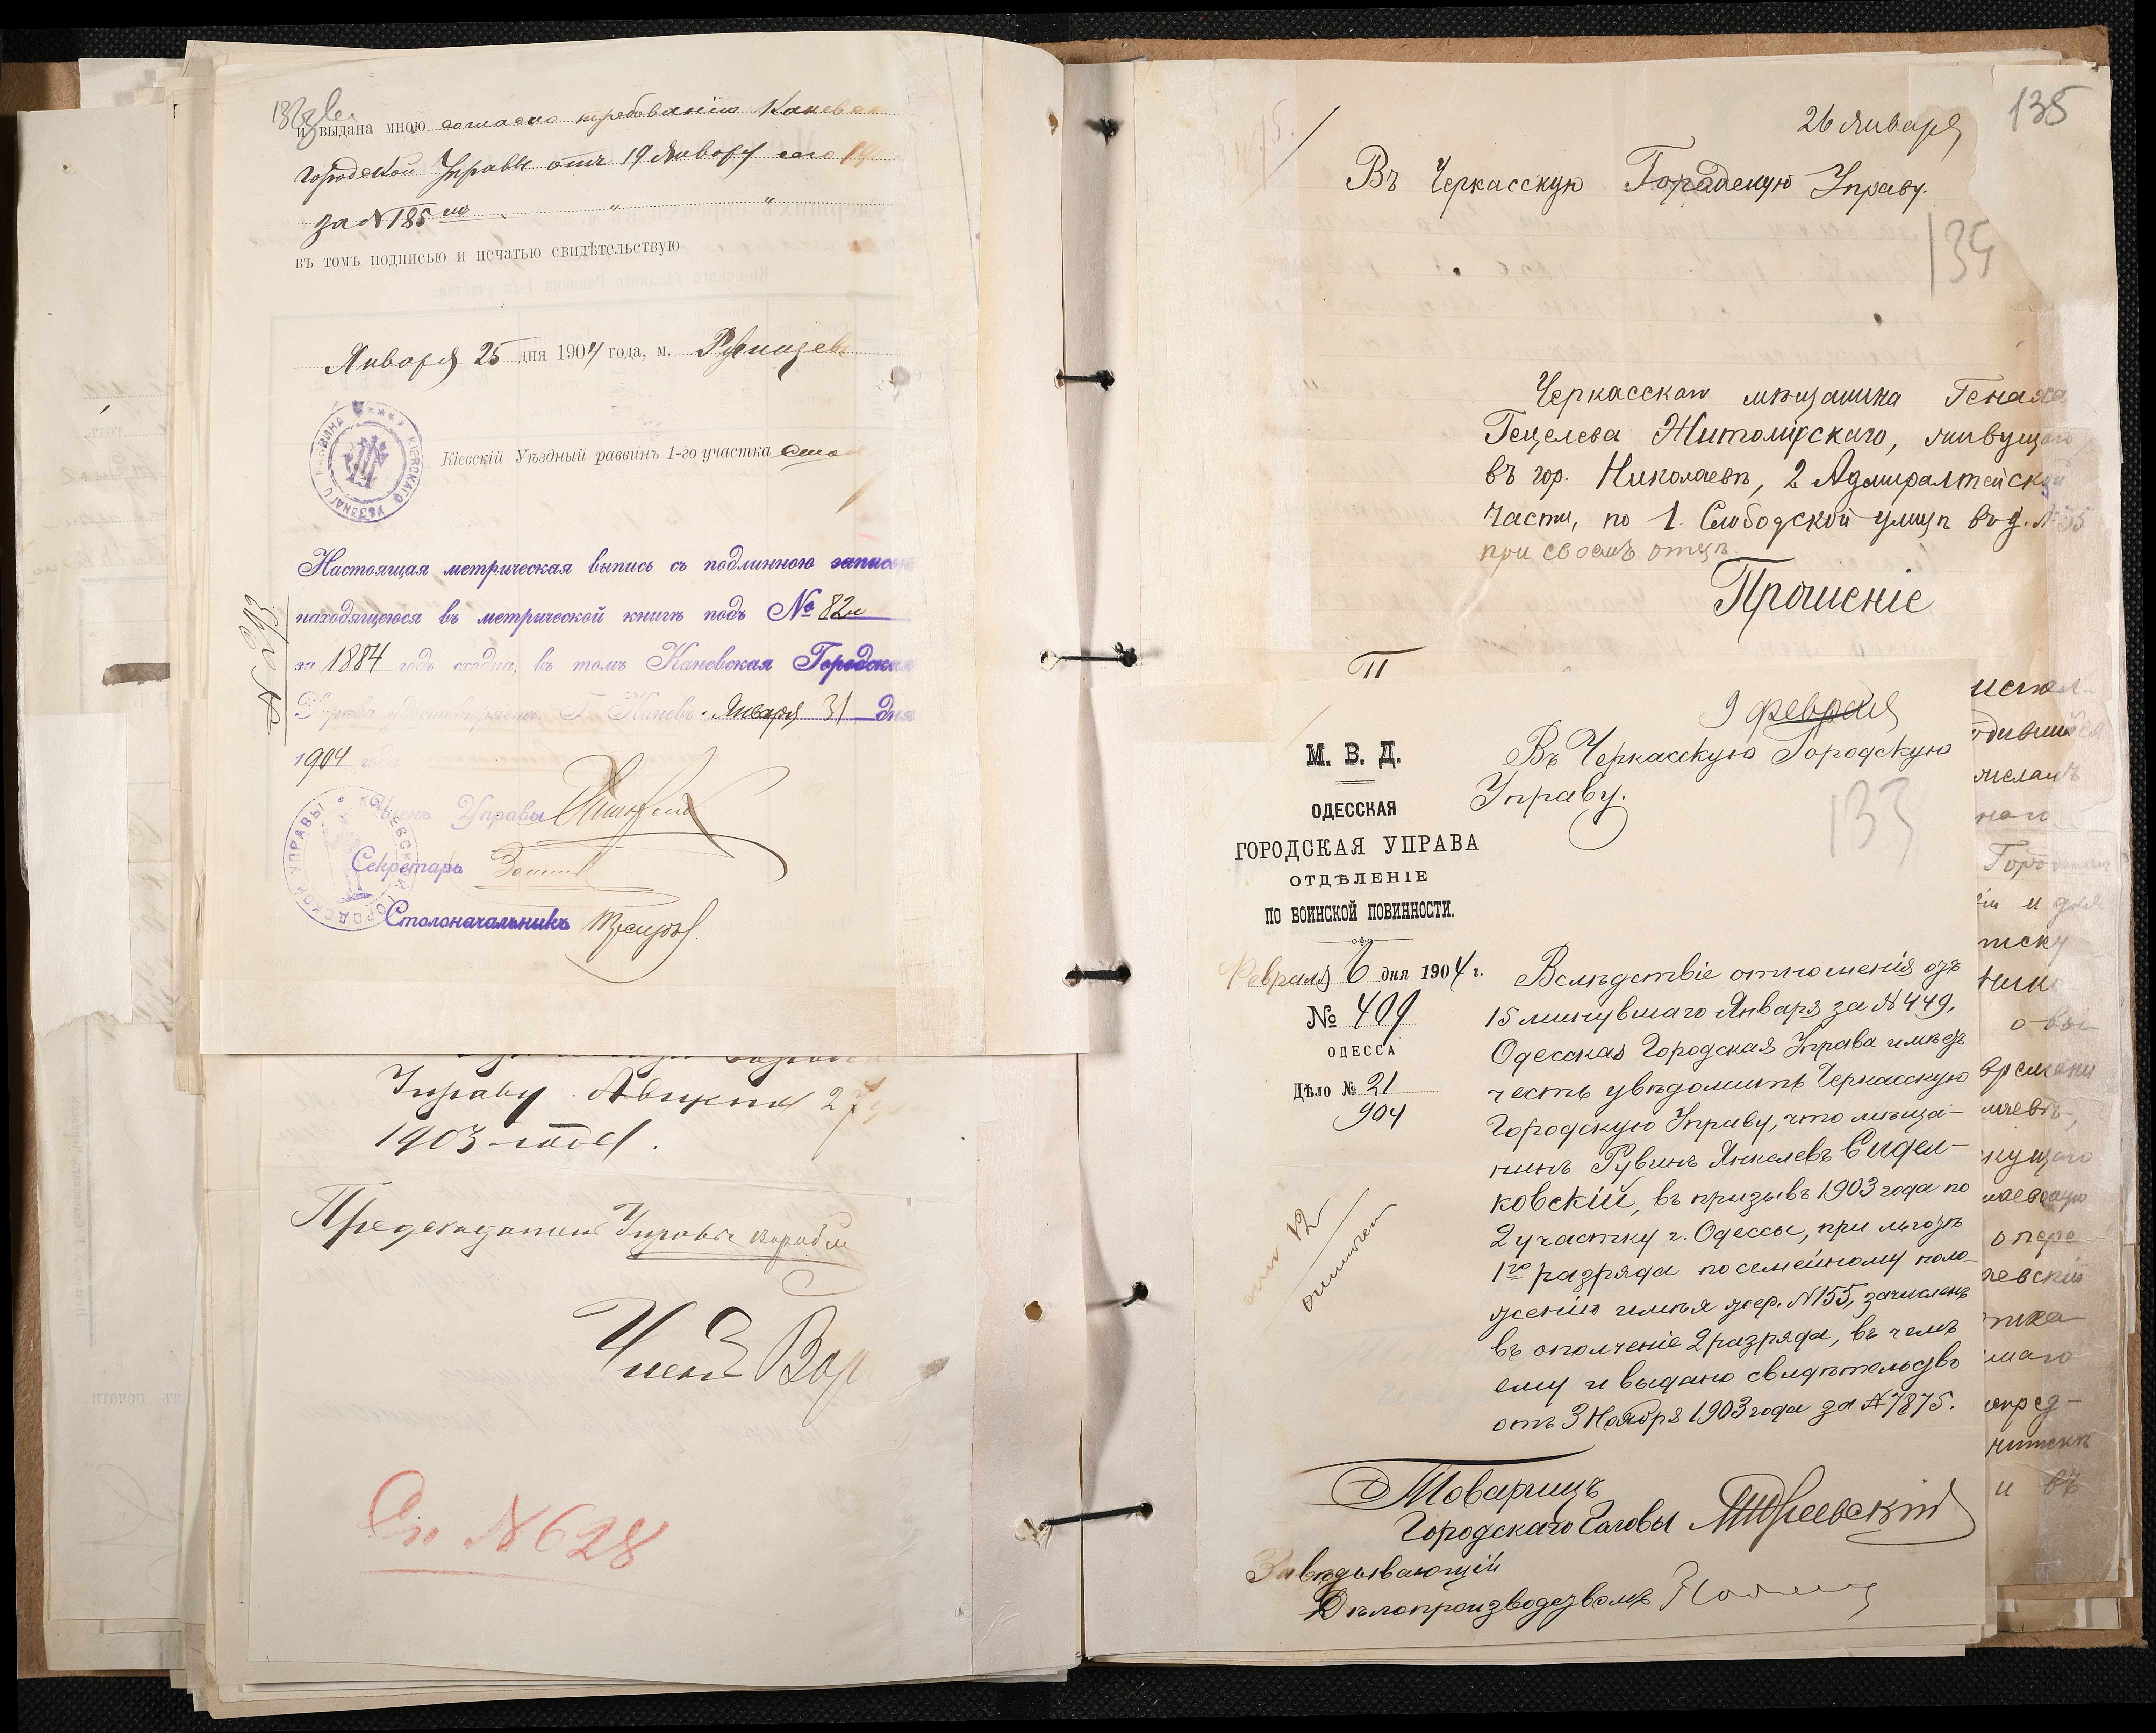 и выдана мною согласно требованію Каневск
городской Управы отъ 19 Января сего
за № 185
въ томъ подписью и печатью свидѣтельствую
Января 25 дня 1904 года, м.
Кіевскій Уѣздный раввинъ 1-го участка
Настоящая метрическая выпись съ подлинною записью
находящеюся въ метрической книгѣ подъ № 82
за 1884 годъ сходна, въ томъ Каневская Городская
Управа удостовѣряетъ. Г. Каневъ. Января 31 дня
1904 года
Членъ Управы
Секретарь
Столоначальникъ
Управу. Августа 27
1903 года.
Предсѣдатель Управы
Членъ
Сп. № 628
135
26 Января
Въ Черкасскую Городскую Управу.
135
Черкасскаго мѣщанина Генаха
Гецелева Житомірскаго, живущаго
въ гор. Николаевѣ, 2 Адмиралтейской
части, по 1 Слободской улицѣ въ д. № 55
при своемъ отцѣ.
Прошеніе
П
9 февраля
133
М. В. Д.
ОДЕССКАЯ
ГОРОДСКАЯ УПРАВА
ОТДѢЛЕНІЕ
ПО ВОИНСКОЙ ПОВИННОСТИ.
Февраля 6 дня 1904 г.
№ 409
ОДЕССА
Дѣло № 21
904
Въ Черкасскую Городскую
Управу.
Вслѣдствіе отношенія отъ
15 минувшаго Января за № 449,
Одесская Городская Управа имѣетъ
честь увѣдомить Черкасскую
Городскую Управу, что мѣща-
нинъ Рувинъ Янкелевъ Сидел-
ковскій, въ призывъ 1903 года по
2 участку г. Одессы, при льготѣ
1го разряда по семейному поло-
женію имѣя жер. № 155, зачисленъ
въ ополченіе 2 разряда, въ чемъ
ему и выдано свидѣтельство
отъ 3 Ноября 1903 года за № 7875.
Товарищъ
Городскаго Головы
Завѣдывающій
Дѣлопроизводствомъ